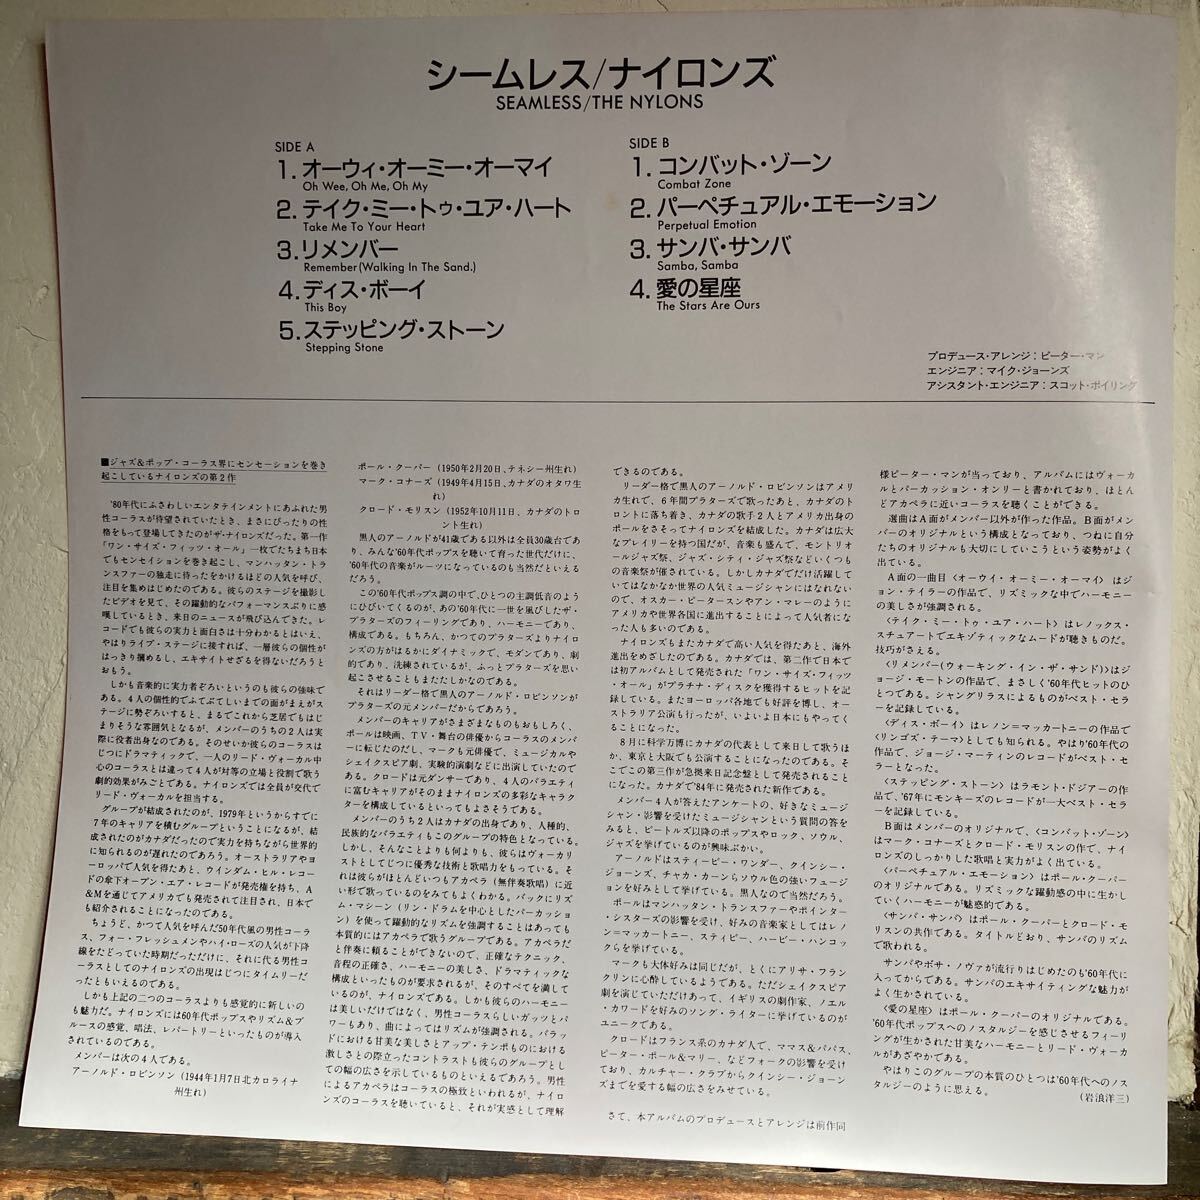 シームレス/ナイロンズ
SEAMLESS/THE NYLONS
SIDE A
1.オーウィ・オーミー・オーマイ
Oh Wee, Oh Me, Oh My
2.テイク・ミー・トゥ・ユア・ハート
Take Me To Your Heart
3.リメンバー
Remember(Walking In The Sand.)
4.ディス・ボーイ
This Boy
5.ステッピング・ストーン
Stepping Stone
SIDE B
1.コンバット・ゾーン
Combat Zone
2.パーペチュアル・エモーション
Perpetual Emotion
3.サンバ・サンバ
Samba, Samba
4.愛の星座
The Stars Are Ours
プロデュース・アレンジ：ピーター・マン
エンジニア：マイク・ジョーンズ
アシスタント・エンジニア：スコット・ボイリング
■ジャズ&ポップ・コーラス界にセンセーションを巻き
起こしているナイロンズの第2作
'80年代にふさわしいエンタテインメントにあふれた男
性コーラスが待望されていたとき、まさにぴったりの性
格をもって登場してきたのがザ・ナイロンズだった。第一作
「ワン・サイズ・フィッツ・オール」一枚でたちまち日本
でもセンセイションを巻き起こし、マンハッタン・トラ
ンスファーの独走に待ったをかけるほどの人気を呼び、
注目を集めはじめたのである。彼らのステージを撮影し
たビデオを見て、その躍動的なパフォーマンスぶりに感
嘆しているとき、来日のニュースが飛び込んできた。レ
コードでも彼らの実力と面白さは十分わかるとはいえ、
やはりライブ・ステージに接すれば、一層彼らの個性が
はっきり摑めるし、エキサイトせざるを得ないだろうと
おもう。
しかも音楽的に実力者ぞろいというのも彼らの強味で
ある。4人の個性的でふてぶてしいまでの面がまえがス
テージに勢ぞろいすると、まるでこれから芝居でもはじ
まりそうな雰囲気となるが、メンバーのうちの2人は実
際に役者出身なのである。そのせいか彼らのコーラスは
じつにドラマティックで、一人のリード・ヴォーカル中
心のコーラスとは違って4人が対等の立場と役割で歌う
劇的効果がみごとである。ナイロンズでは全員が交代で
リード・ヴォーカルを担当する。
グループが結成されたのが、1979年というからすでに
7年のキャリアを積むグループということになるが、結
成されたのがカナダだったので実力を持ちながら世界的
に知られるのが遅れたのであろう。オーストラリアやヨ
ーロッパで人気を得たあと、ウインダム・ヒル・レコー
ドの傘下オープン・エア・レコードが発売権を持ち、A
&Mを通じてアメリカでも発売されて注目され、日本で
も紹介されることになったのである。
ちょうど、かつて人気を呼んだ50年代風の男性コーラ
ス、フォー・フレッシュメンやハイ・ローズの人気が下降
線をたどっていた時期だっただけに、それに代る男性コ
ーラスとしてのナイロンズの出現はじつにタイムリーだ
ったともいえるのである。
しかも上記の二つのコーラスよりも感覚的に新しいの
も魅力だ。ナイロンズには60年代ポップスやリズム&ブ
ルースの感覚、唱法、レパートリーといったものが導入
されているのである。
メンバーは次の4人である。
アーノルド・ロビンソン (1944年1月7日北カロライナ
州生れ)
ポール・クーパー (1950年2月20日、テネシー州生れ)
マーク・コナーズ (1949年4月15日、カナダのオタワ生
れ)
クロード・モリスン (1952年10月11日、カナダのトロ
ント生れ)
黒人のアーノルドが41歳である以外は全員30歳台であ
り、みんな'60年代ポップスを聴いて育った世代だけに、
'60年代の音楽がルーツになっているのも当然だといえる
だろう。
この'60年代ポップス調の中で、ひとつの主調低音のように
ひびいてくるのが、あの'60年代に一世を風びしたザ・
プラターズのフィーリングであり、ハーモニーであり、
構成である。もちろん、かつてのプラターズよりナイロ
ンズの方がはるかにダイナミックで、モダンであり、劇
的であり、洗練されているが、ふっとプラターズを思い
起こさせることもまたたしかなのである。
それはリーダー格で黒人のアーノルド・ロビンソンが
プラターズの元メンバーだからであろう。
メンバーのキャリアがさまざまなものもおもしろく、
ポールは映画、TV・舞台の俳優からコーラスのメンバ
ーに転じたのだし、マークも元俳優で、ミュージカルや
シェイクスピア劇、実験的演劇などに出演していたので
ある。クロードは元ダンサーであり、4人のバラエティ
に富むキャリアがそのままナイロンズの多彩なキャラク
タを構成しているといってもよさそうである。
メンバーのうち2人はカナダの出身であり、人種的、
民族的なバラエティもこのグループの特色となっている。
しかし、そんなことよりも何よりも、彼らはヴォーカリ
ストとしてじつに優秀な技術と歌唱力をもっている。そ
れは彼らがほとんどいつもアカペラ (無伴奏歌唱) に近
い形で歌っているのをみてもよくわかる。バックにリズ
ム・マシーン (リン・ドラムを中心としたパーカッショ
ン) を使って躍動的なリズムを強調することはあっても
本質的にはアカペラで歌うグループである。アカペラだ
と伴奏に頼ることができないので、正確なテクニック、
音程の正確さ、ハーモニーの美しさ、ドラマティックな
構成といったものが要求されるが、そのすべてを満して
いるのが、ナイロンズである。しかも彼らのハーモニー
は美しいだけではなく、男性コーラスらしいガッツとパ
ワーもあり、曲によってはリズムが強調される。バラッ
ドにおける甘美な美しさとアップ・テンポものにおける
激しさとの際立ったコントラストも彼らのグループとし
ての幅の広さを示しているものといえるであろう。男性
によるアカペラはコーラスの極致といわれるが、ナイロ
ンズのコーラスを聴いていると、それが実感として理解
できるのである。
リーダー格で黒人のアーノルド・ロビンソンはアメリ
カ生れで、6年間プラターズで歌ったあと、カナダのト
ロントに落ち着き、カナダの歌手2人とアメリカ出身の
ポールをさそってナイロンズを結成した。カナダは広大
なプレイリーを持つ国だが、音楽も盛んで、モントリオ
ールジャズ祭、ジャズ・シティ・ジャズ祭などいくつも
の音楽祭が催されている。しかしカナダでだけ活躍して
いてはなかなか世界の人気ミュージシャンにはなれない
ので、オスカー・ピータースンやアン・マレーのように
アメリカや世界各国に進出することによって人気者にな
った人も多いのである。
ナイロンズもまたカナダで高い人気を得たあと、海外
進出をめざしたのである。カナダでは、第二作で日本で
は初アルバムとして発売された「ワン・サイズ・フィッツ
・オール」がプラチナ・ディスクを獲得するヒットを記
録している。またヨーロッパ各地でも好評を博し、オー
ストラリア公演も行ったが、いよいよ日本にもやってく
ることになった。
8月に科学万博にカナダの代表として来日して歌うほ
か、東京と大阪でも公演することになったのである。そ
こでこの第三作が急拠来日記念盤として発売されること
になった。カナダで'84年に発売された新作である。
メンバー4人が答えたアンケートの、好きなミュージ
シャン・影響を受けたミュージシャンという質問の答を
みると、ビートルズ以降のポップスやロック、ソウル
ジャズを挙げているのが興味ぶかい。
アーノルドはスティービー・ワンダー、クインシー・
ジョーンズ、チャカ・カーンらソウル色の強いフュージ
ョンを好みとして挙げている。黒人なので当然だろう。
ポールはマンハッタン・トランスファーやポインター
・シスターズの影響を受け、好みの音楽家としてはレノ
ン＝マッカートニー、スティビー、ハービー・ハンコッ
クらを挙げている。
マークも大体好みは同じだが、とくにアリサ・フラン
クリンに心酔しているようである。ただシェイクスピア
劇を演じていただけあって、イギリスの劇作家、ノエル
・カワードを好みのソング・ライターに挙げているのが
ユニークである。
クロードはフランス系のカナダ人で、ママス&パパス、
ピーター・ポール&マリー、などフォークの影響を受け
ており、カルチャー・クラブからクインシー・ジョーン
ズまでを愛する幅の広さをみせている。
さて、本アルバムのプロデュースとアレンジは前作同
様ピーター・マンが当っており、アルバムにはヴォーカ
ルとパーカッション・オンリーと書かれており、ほとん
どアカペラに近いコーラスを聴くことができる。
選曲はA面がメンバー以外が作った作品。B面がメン
バーのオリジナルという構成となっており、つねに自分
たちのオリジナルも大切にしていこうという姿勢がよく
出ている。
A面の一曲目〈オーウイ・オーミー・オーマイ〉はジ
ョン・テイラーの作品で、リズミックな中でハーモニー
の美しさが強調される。
〈テイク・ミー・トゥ・ユア・ハート〉はレノックス・
スチュアートでエキゾティックなムードが聴きものだ。
技巧がさえる。
〈リメンバー(ウォーキング・イン・ザ・サンド)〉はジ
ョージ・モートンの作品で、まさしく'60年代ヒットのひ
とつである。シャングリラスによるものがベスト・セラ
ーを記録している。
〈ディス・ボーイ〉はレノン＝マッカートニーの作品で
〈リンゴズ・テーマ〉としても知られる。やはり'60年代の
作品で、ジョージ・マーティンのレコードがベスト・セ
ラーとなった。
〈ステッピング・ストーン〉はラモント・ドジアーの作
品で、'67年にモンキーズのレコードが一大ベスト・セラ
ーを記録している。
B面はメンバーのオリジナルで、〈コンバット・ゾーン〉
はマーク・コナーズとクロード・モリスンの作で、ナイ
ロンズのしっかりした歌唱と実力がよく出ている。
〈パーペチュアル・エモーション〉はポール・クーパー
のオリジナルである。リズミックな躍動感の中に生かし
ていくハーモニーが魅惑的である。
〈サンバ・サンバ〉はポール・クーパーとクロード・モ
リスンの共作である。タイトルどおり、サンバのリズム
で歌われる。
サンバやボサ・ノヴァが流行りはじめたのも'60年代に
入ってからである。サンバのエキサイティングな魅力が
よく生かされている。
〈愛の星座〉はポール・クーパーのオリジナルである。
'60年代ポップスへのノスタルジーを感じさせるフィーリ
ングが生かされた甘美なハーモニーとリード・ヴォーカ
ルがあざやかである。
やはりこのグループの本質のひとつは'60年代へのノス
タルジーのように思える。
(岩浪洋三)